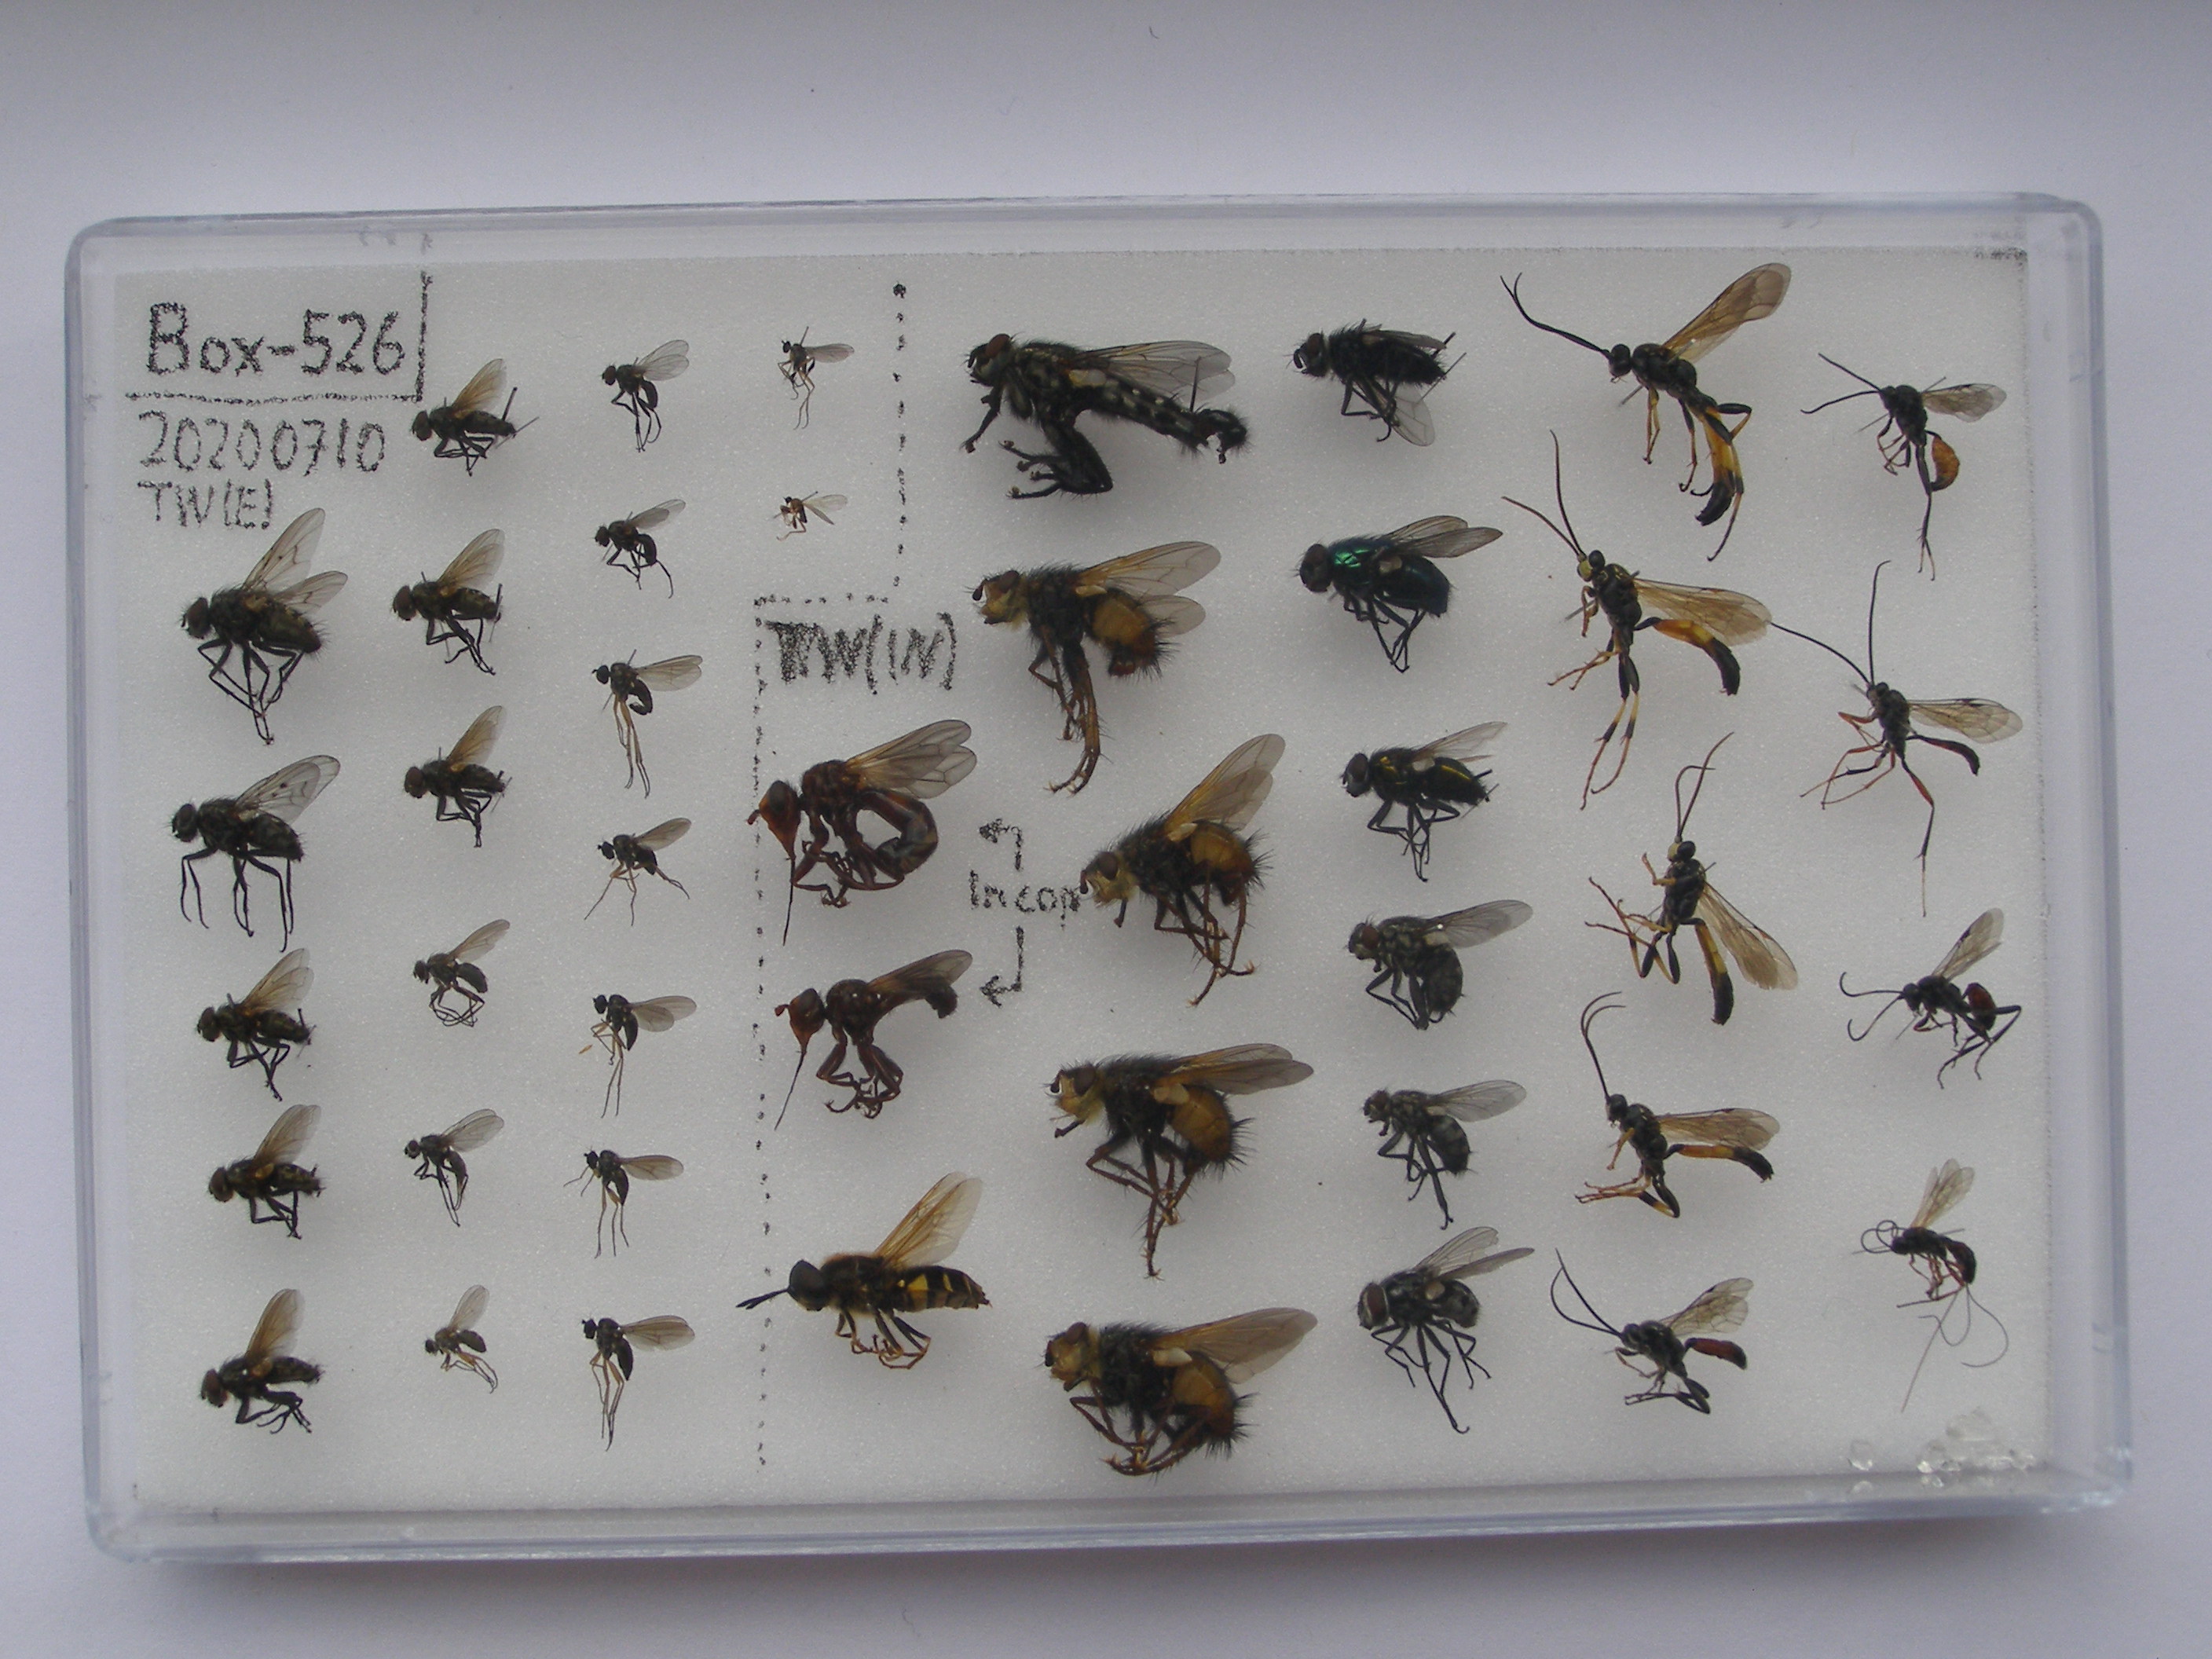 Box-526
20200710
TW(E)
TW(IN)
In cop